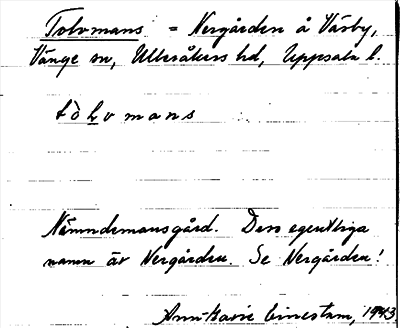 Tolvmans = Nergården å Väsby,
Vänge sn, Ulleråkers hd, Uppsala l.
tòlvmans
Nämndemansgård. Dess egentliga
namn är Nergården. Se Nergården!
Ann-Marie 1943